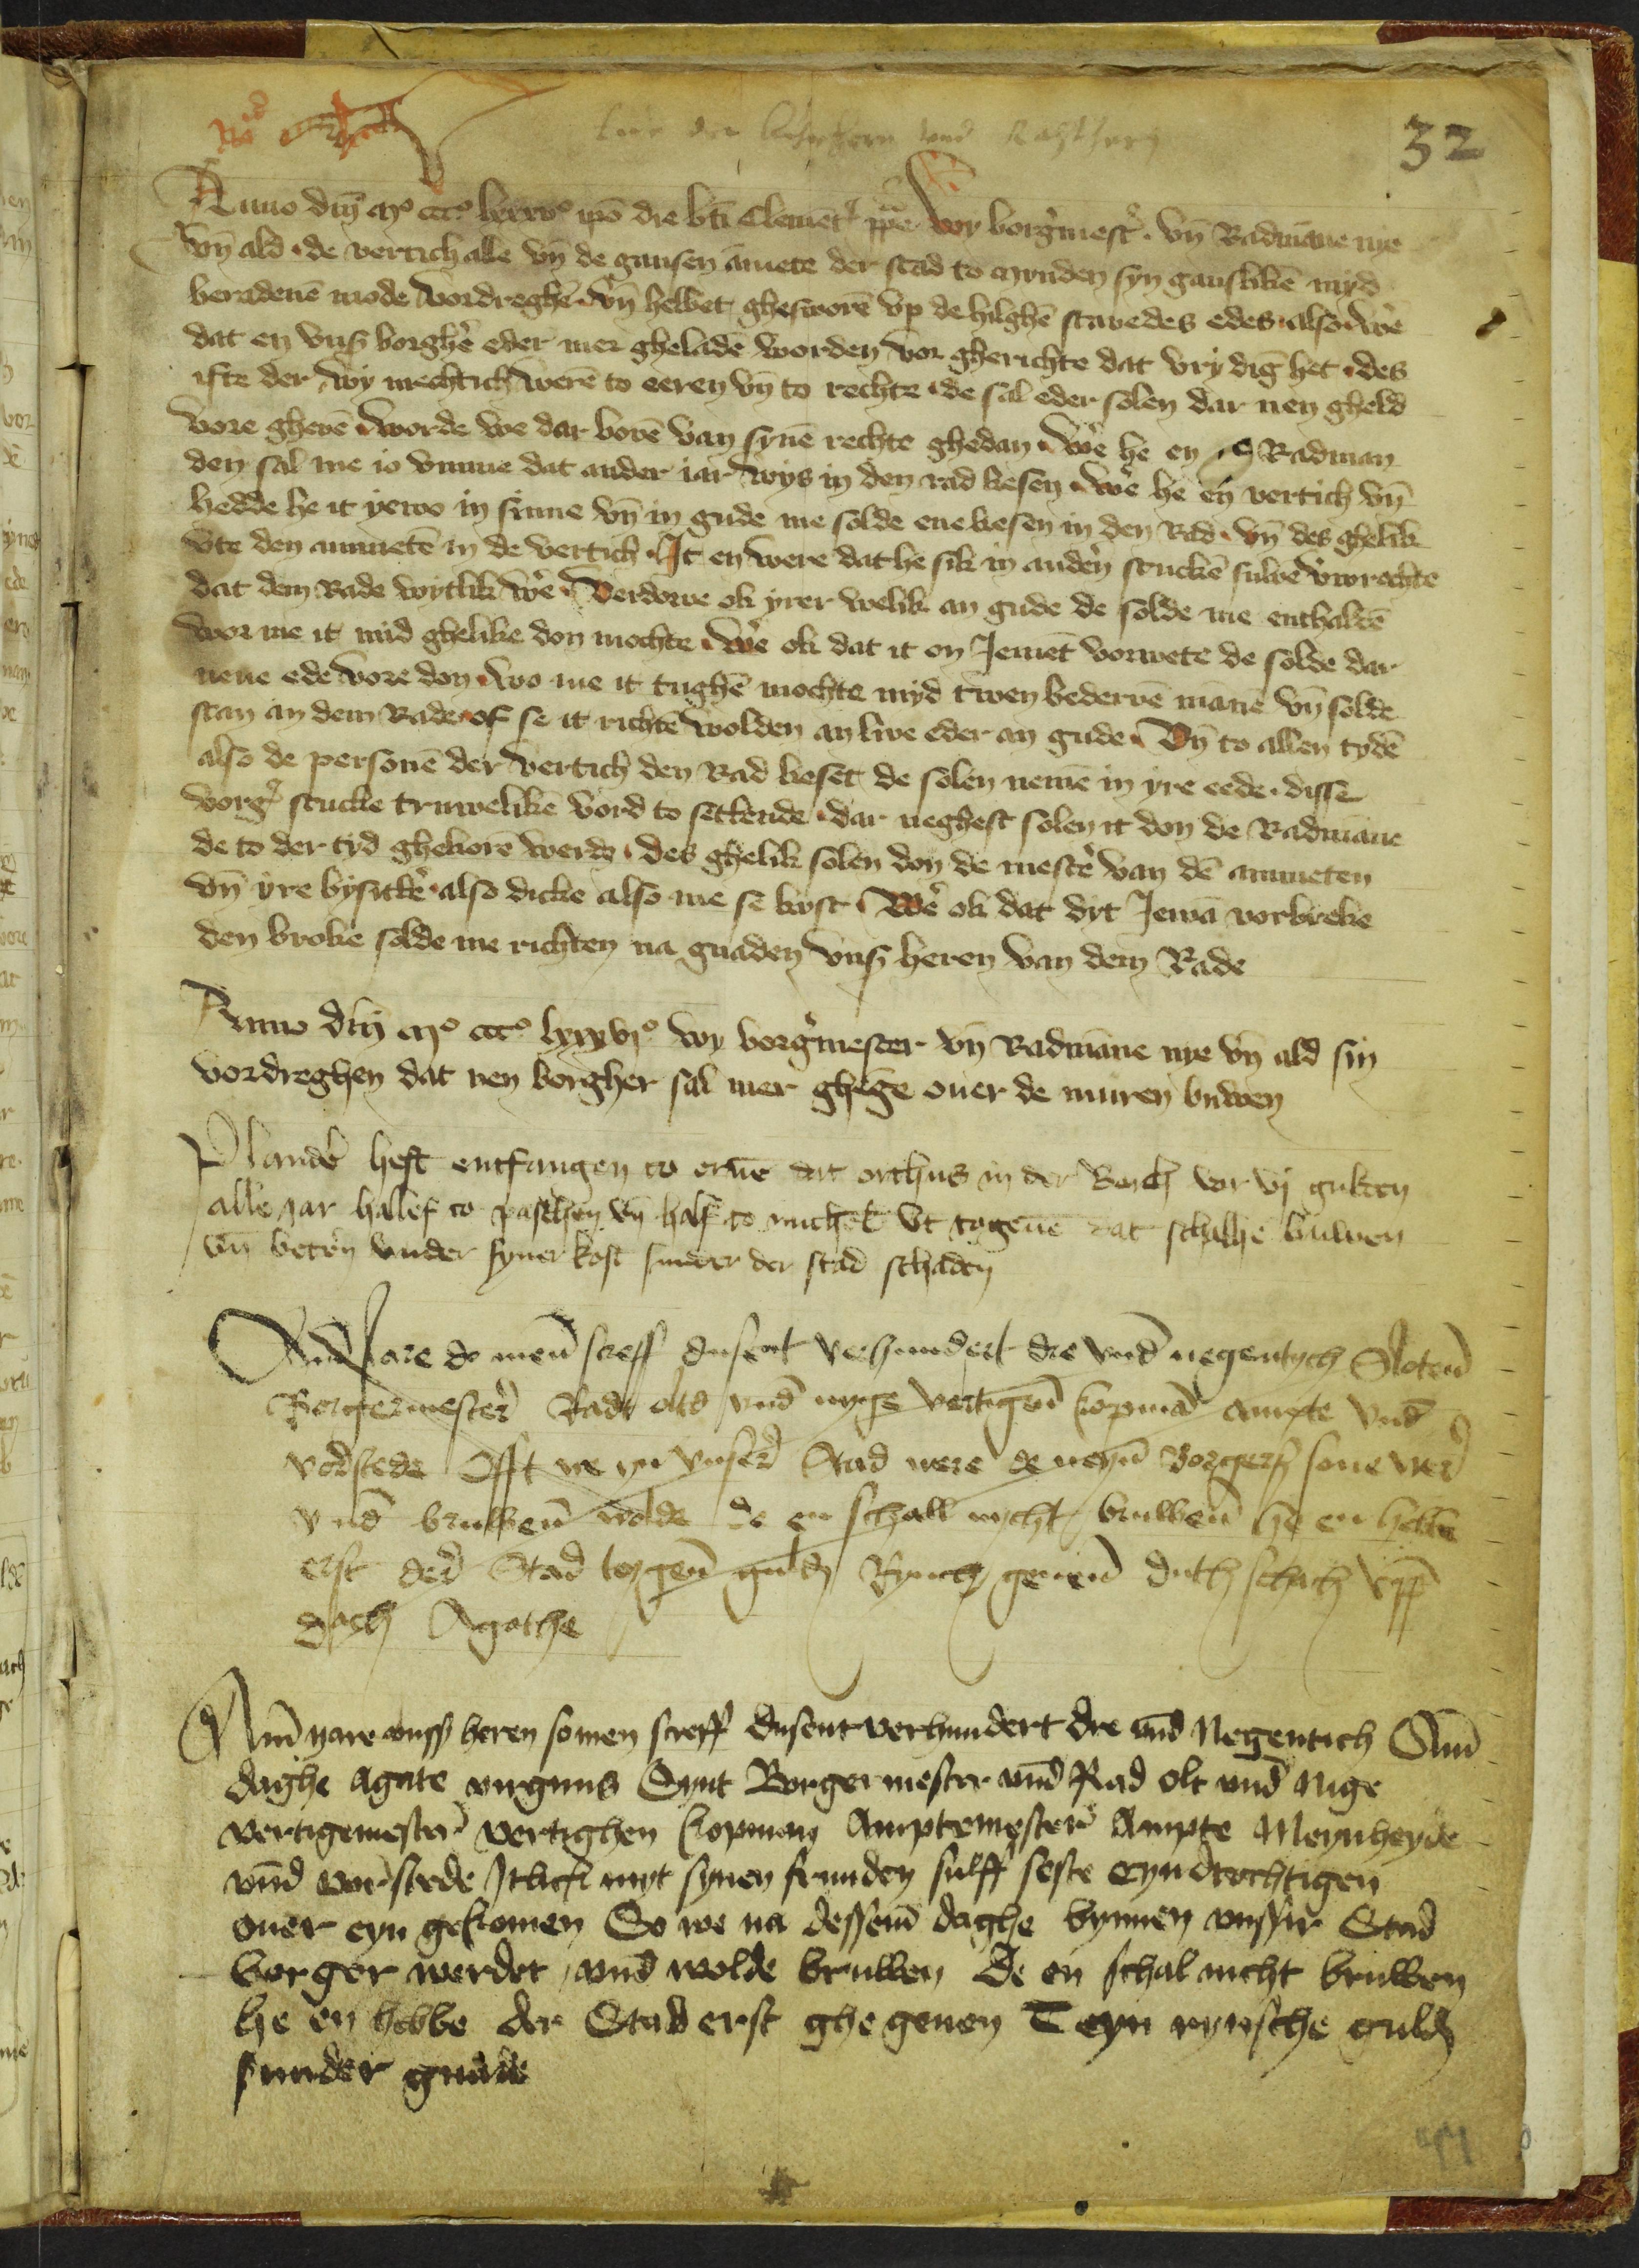 32
Anno dn̄j mᵒ cccᵒ lxxxvᵒ ip̄o die bt̄i Clemēt' pp̄e Wy borg'mest'. vn̄ Radmāne nye
vn̄ ald. de vertich alle vn̄ de gansen āmete der stad to mynden syn gansliken myd
beradenē mode vordreghē. vn̄ hebbet ghesworē vp de hilghē stavedes edes. also. wē
dat en vnß borghē eder mer gheladē worden vor gherichte dat vry dig het. des
ifte der wy mechtich werē to eeren vn̄ to rechte. de sal eder solen dar nen gheld
vore ghevē. worde we dar bovē van synē rechte ghedan. wē he en Radman
den sal me io vmme dat ander iar wys in den rad kesen. wē he en vertich vn̄
hedde he it yewo in sinne vn̄ in gude me solde ene kesen in den Rad. vn̄ des ghelik
vte den ammetē in de vertich. It en were dat he sik in anderñ stuckē sulvē vorwrachte
dat dem Rade wytlik wē. Verdorve ok yrer welik an gude de solde me enthaldē
wor me it mid ghelike don mochte. wē ok dat it en Jemēt vorwete de solde dar
nene ede vore don. wo me it tughē mochte myd twen bedervē mānē vn̄ solde
stan an dem Rade. of se it richtē wolden an live eder an gude. Vn̄ to allen tydē
also de personē der vertich den Rad keset de solen nemē in yre eede. disse
vorg' stucke truwelikē vord to settende. dar neghest solen it don de Radmāne
de to der tyd ghekorē werdē. des ghelik solen don de mestē van dē ammeten
vn̄ yre bysittē. also dicke also me se kust. Wē ok dat dyt Jemā vorbreke
den broke solde me richten na gnaden vnß heren van dem Rade
Anno dn̄j mᵒ cccᵒ lxxxvjᵒ wy borg'mester vn̄ Radmāne nye vn̄ ald sin
vordreghen dat nen borgher sal mer ghēge ouer de muren buwen
Plander heft entfangen to eruē dat orthus in der Bech vor vj gulden
alle jar hallef to paschen vn̄ half to michel' vt togeuē dat schal he buwen
vn̄ betern vnder syner kost sunder der stad schaden
Am Jare do men screff dusent verhundert dre vnd negentych
Borgermester Rad olt vnd nyge vertigen kopman ampte vnd
vorstede Offt we yn vnser Stad were de neyn Borgers sone wer
vnd bruwen wolde de en schall nycht bruwen he en hebbe
erst der Stad teygen gulden Rynsch geuen duth schach vpp
dach Agathe
Am yare vnß heren so men screff dusent verhundert dre vnd Negentich Am
daghe agate virginis Synt Borgermester vnd Rad olt vnd Nige
vertigemester vertighen kopman Amptemester Ampte Meynheyde
vnd vorstede Itlick myt synen frunden sulff seste eyndrechtigen
ouer eyn gekomen So we na dessem daghe bynnen vnsser Stad
borger werdet vnd wolde bruwen De en schal nicht bruwen
he en hebbe der Stad erst ghegeuen Teyn rynsche guld
sunder gnade